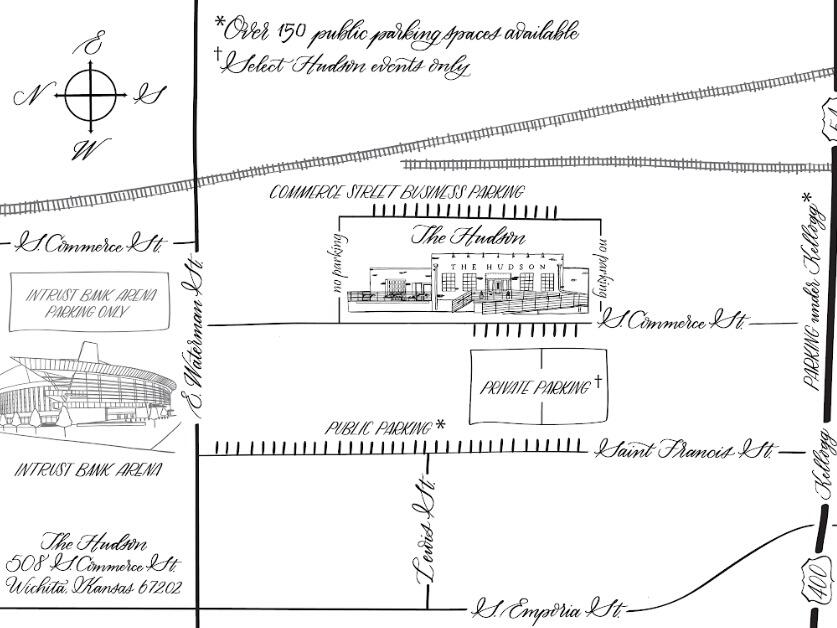 *Over 150 public parking spaces available
†Select Hudson events only
E
N
S
W
54
COMMERCE STREET BUSINESS PARKING
The Hudson
no parking
no parking
THE HUDSON
S. Commerce St.
INTRUST BANK ARENA
PARKING ONLY
E. Waterman St.
S. Commerce St.
PARKING under Kellogg*
PRIVATE PARKING†
PUBLIC PARKING*
Saint Francis St.
INTRUST BANK ARENA
Kellogg
Lewis St.
The Hudson
508 S. Commerce St.
Wichita, Kansas 67202
400
S. Emporia St.